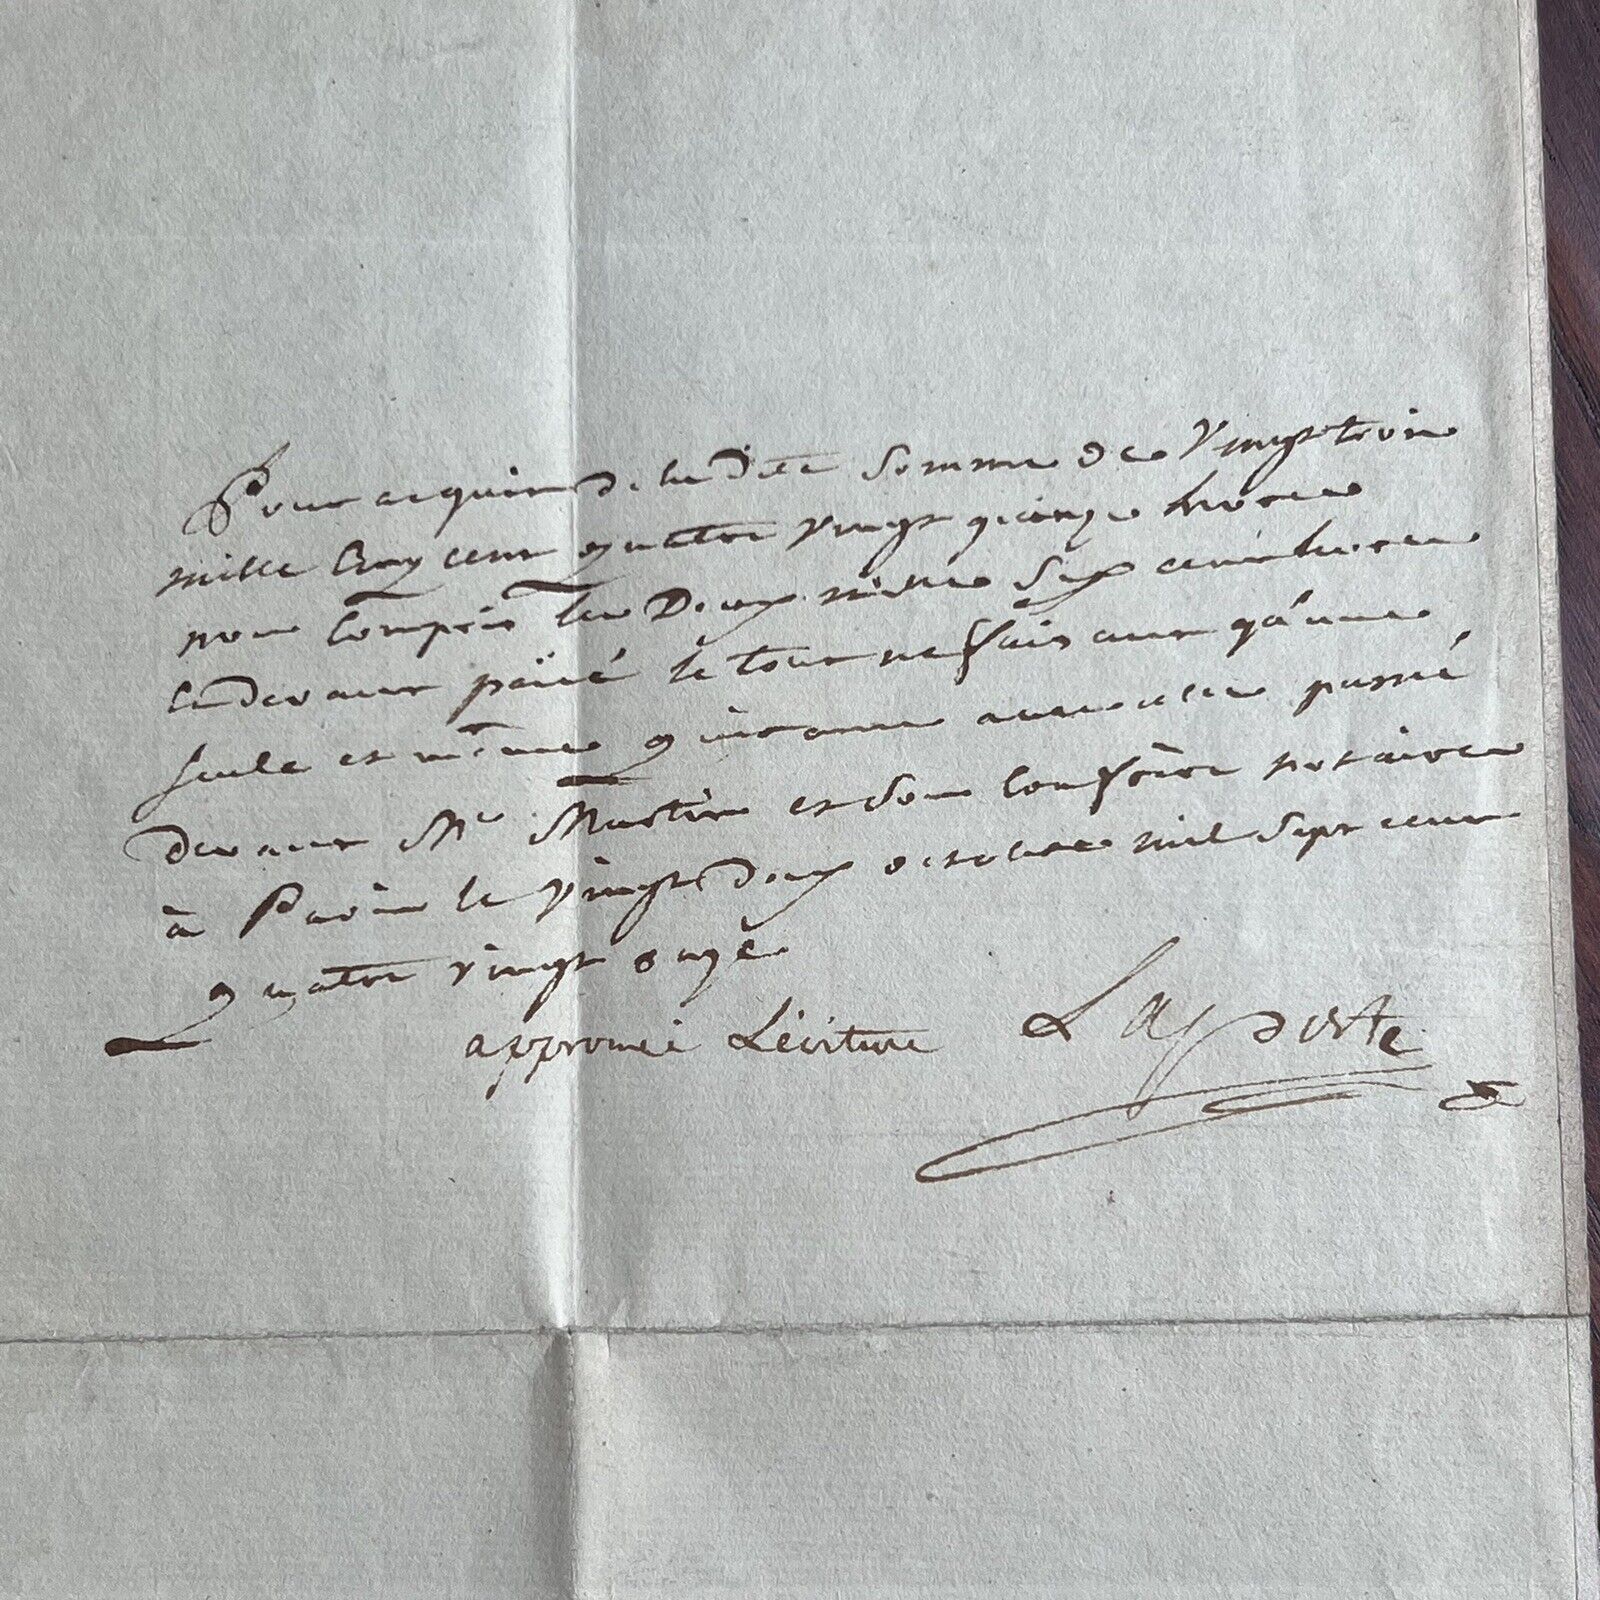 Pour acquit de la dite somme de vingt trois
mille cinq cent quatre vingt quinze livres
non compris les deux mille six cent livres
ci devant païé le tout ne faisant qu'une
seule et même quittance avec celle passé
devant Me Martin et son confrère notaires
à Paris le vingt deux octobre mil sept cent
quatre vingt onze
approuvé Lécriture Laporte